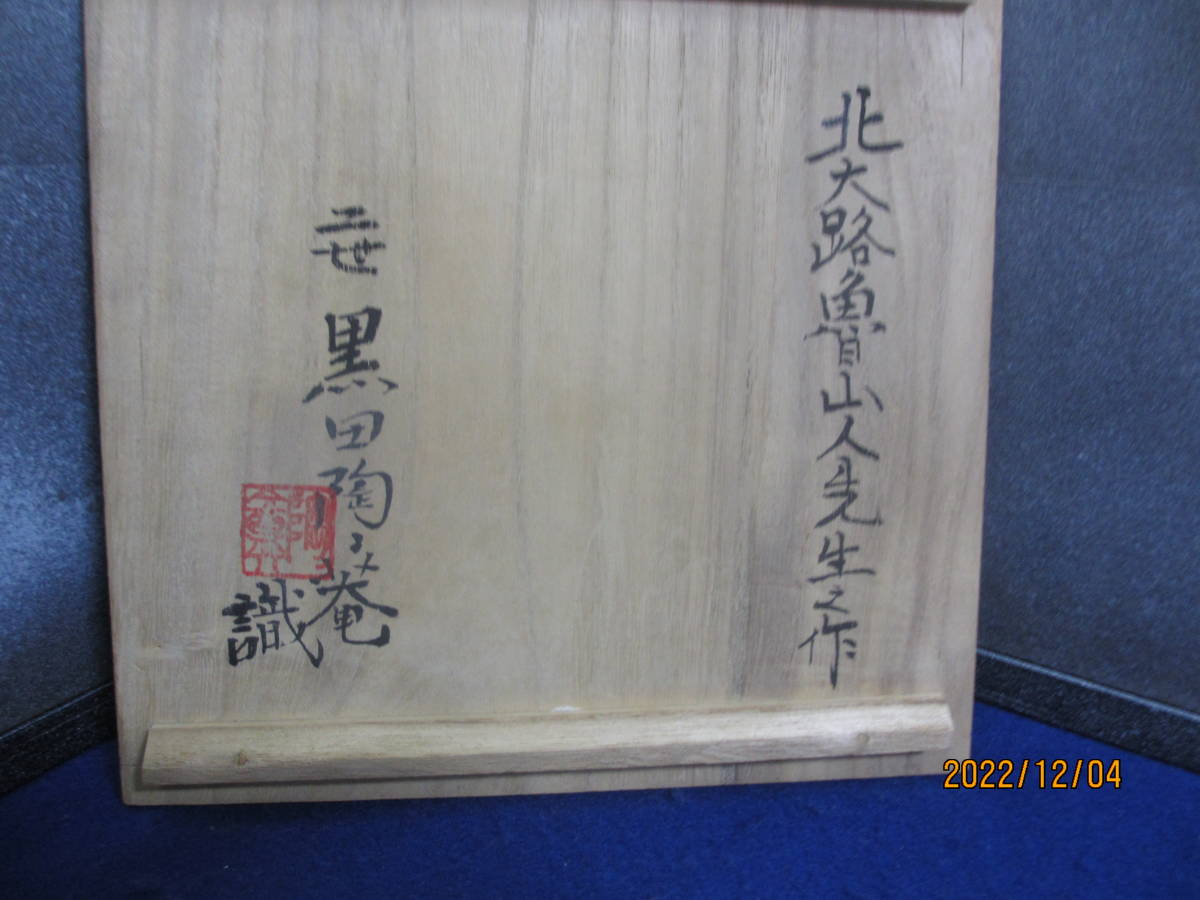 北大路魯山人先生之作
二世 黒田陶々菴
識
2022/12/04